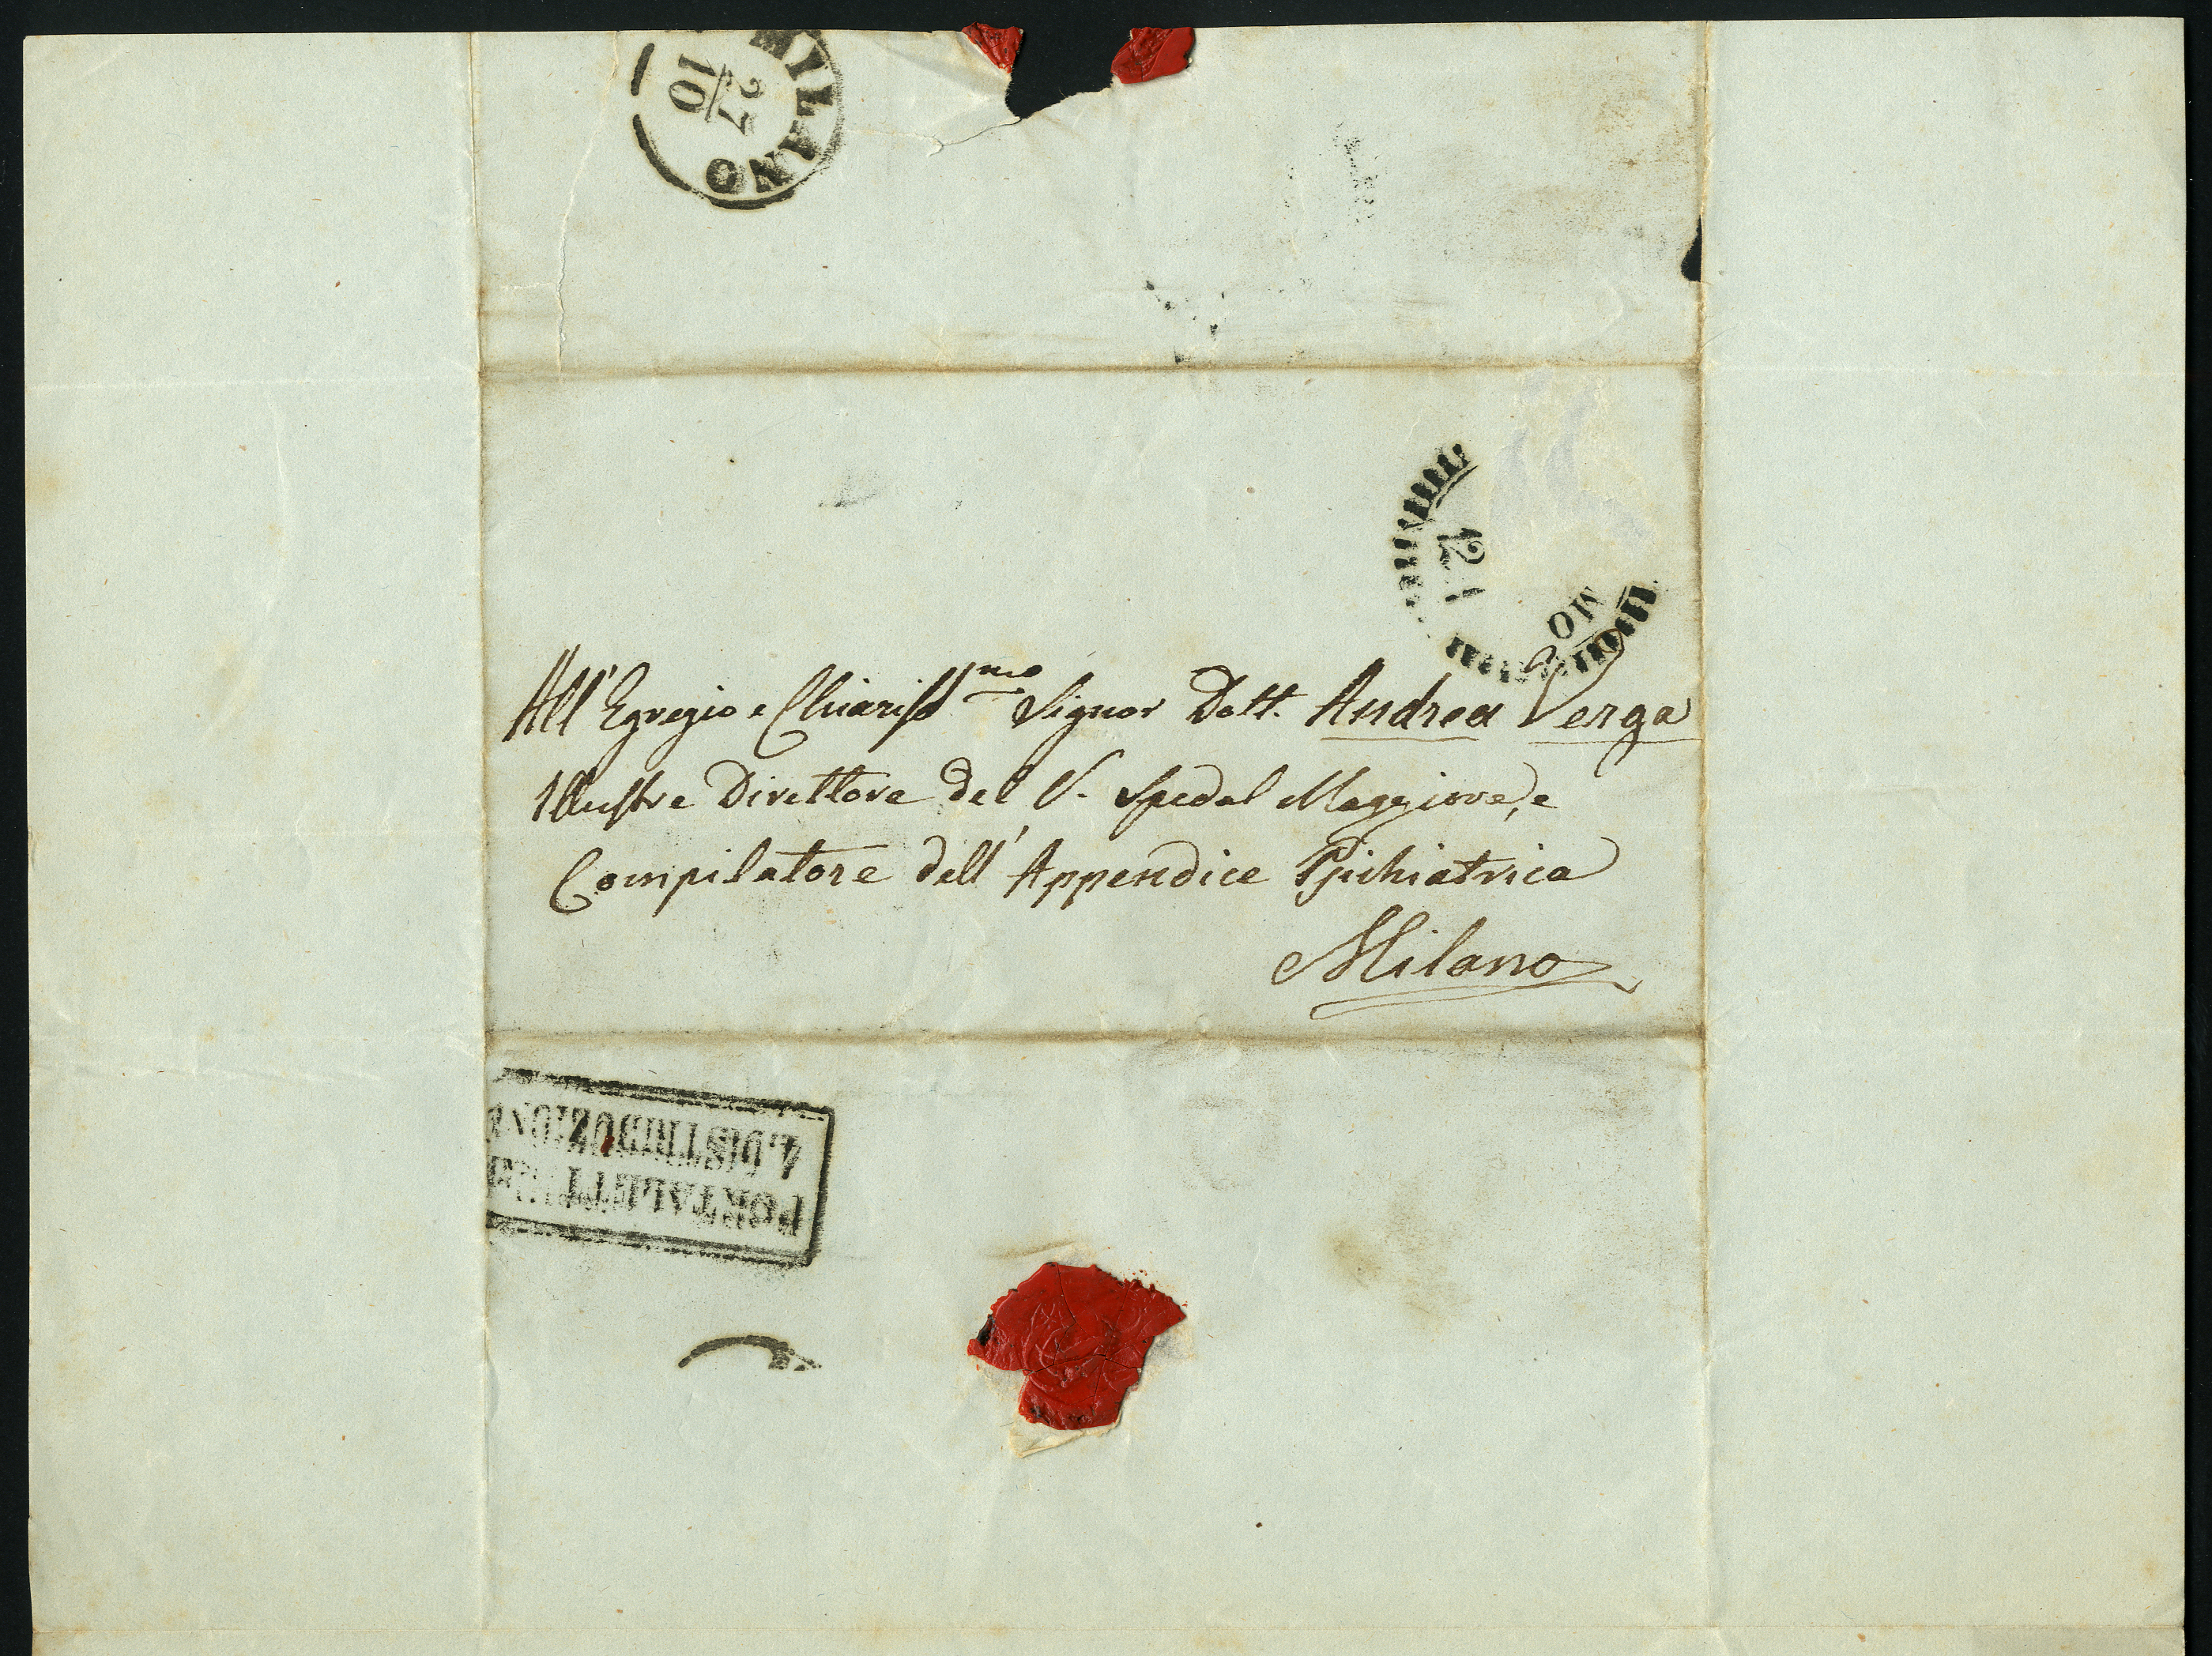 MILANO
27
10
12
MO
All'Egregio e Chiariss.mo Signor Dott. Andrea Verga
Illustre Direttore del V. Spedal Maggiore, e
Compilatore dell'Appendice Psichiatrica
Milano
PORTALETTERE
4. DISTRIBUZIONE